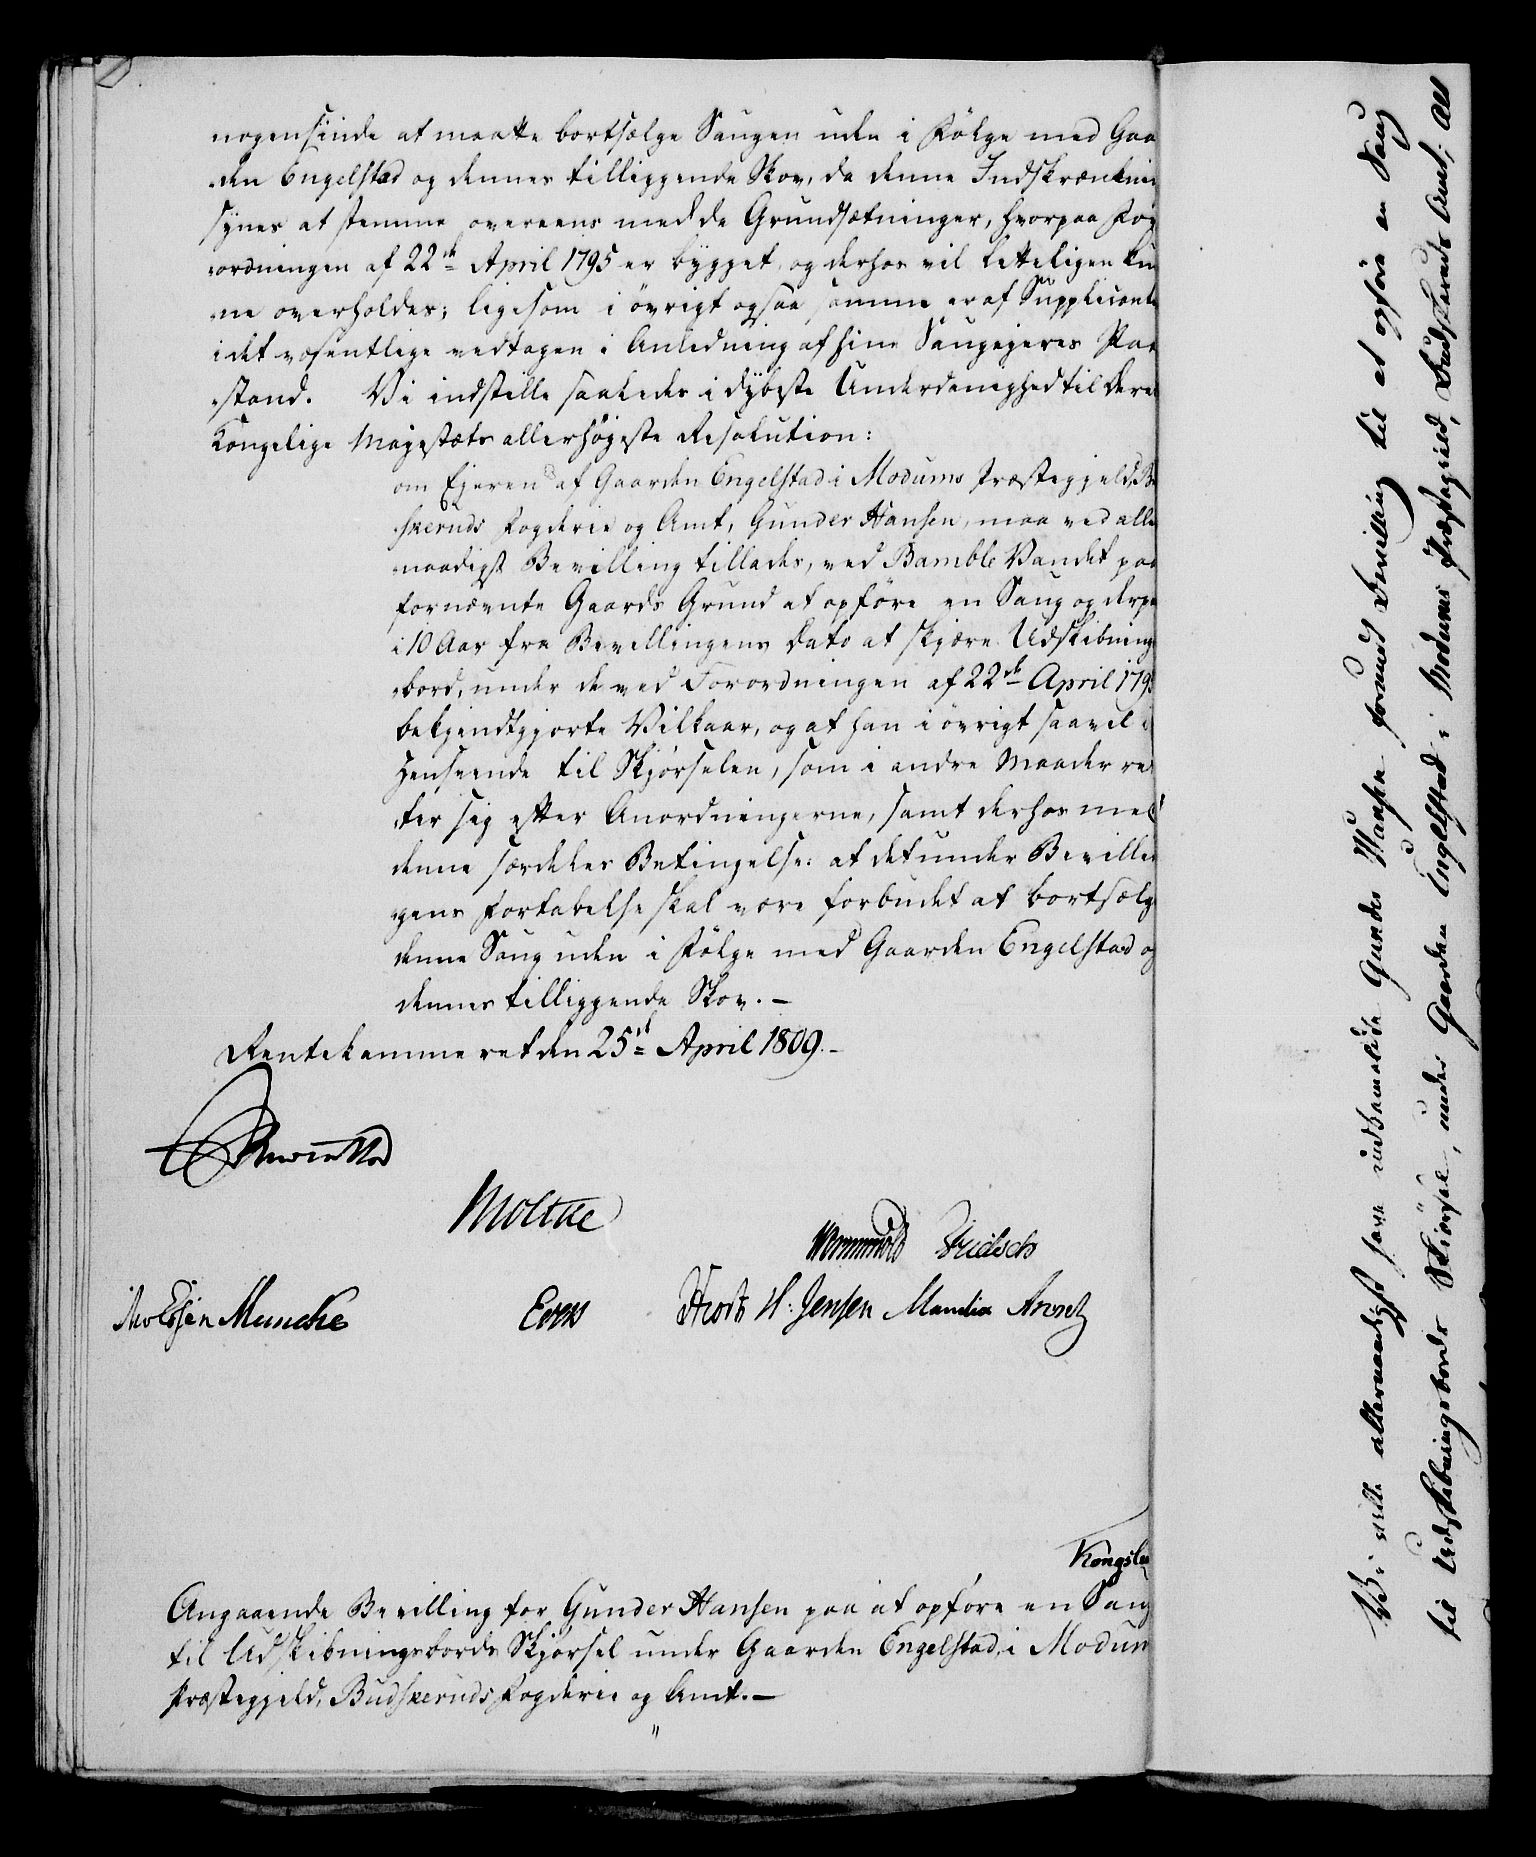 nogensinde at maatte bortsælge Saugen uden i Følge med Gaa
den Engelstad og dennes tilliggende Skov, da denne Indskrænknin
synes at stemme overeens med de Grundsætninger, hvorpaa For
ordningen af 22de April 1795 er bygget, og derhos vil letteligen kun
ne overholdes; ligesom i övrigt ogsaa samme er af Supplicante
i det væsentlige vedtagen i Anledning af hine Saugejeres Paa
stand. Vi indstille saaledes i dÿbeste Underdanighed til Deres
Kongelige Majestæts allerhøjeste Resolution:
om Ejeren af Gaarden Engelstad i Modums Præstegjeld, B
skeruds Fogderie og Amt, Gunder Hansen, maa ved aller
naadigst Bevilling tillades, ved Bamble Vandet paa
fornævnte Gaards Grund at opföre en Saug og derpaa
i 10 Aar fra Bevillingens Dato at skjære Udskibnings
bord, under de ved Forordningen af 22de April 1795
bekjendtgjorte Vilkaar, og at han i övrigt saavel i
Henseende til Skjørselen, som i andre Maader ret
ter sig efter Anordningerne, samt derhos med
denne særdeles Betingelse: at det under Bevillin
gens Fortabelse skal være forbudet at bortsælge
denne Saug uden i Fölge med Gaarden Engelstad og
dennes tilliggende Skov. —
Rentekammeret den 25de April 1809. —
Moltke
Wormskiold
Monrad Essen Muncke Evers Hiort H: Jensen Manthei Arentz
Kongsb
Angaaende Bevilling for Gunder Hansen paa at opføre en Saug
til Udskibningsbords Skjørsel under Gaarden Engelstad, i Modum
Præstegjeld, Budskeruds Fogderie og Amt. —
Vi ville allernaadigst have indbemeldte Gunder Hansen forundt Bevilling til at opföre en Saug
til Udskibningsbords Skiørsel, under Gaarden Engelstad i Modums Præstegield, Budskeruds Amt; Alt